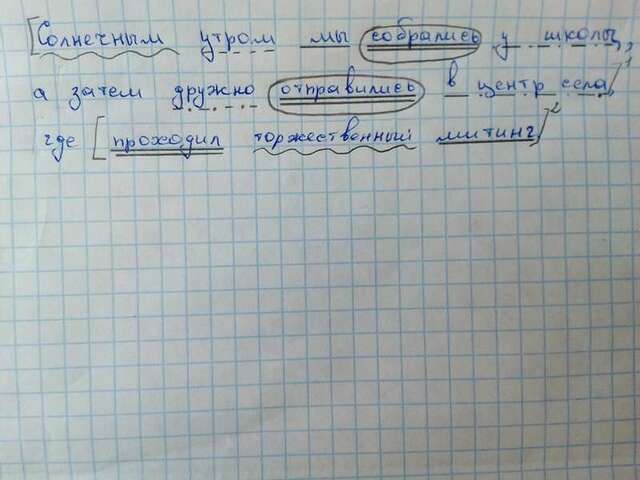 [Солнечным утром мы собрались у школы,
а затем дружно отправились в центр села]¹,
где [проходил торжественный митинг]²